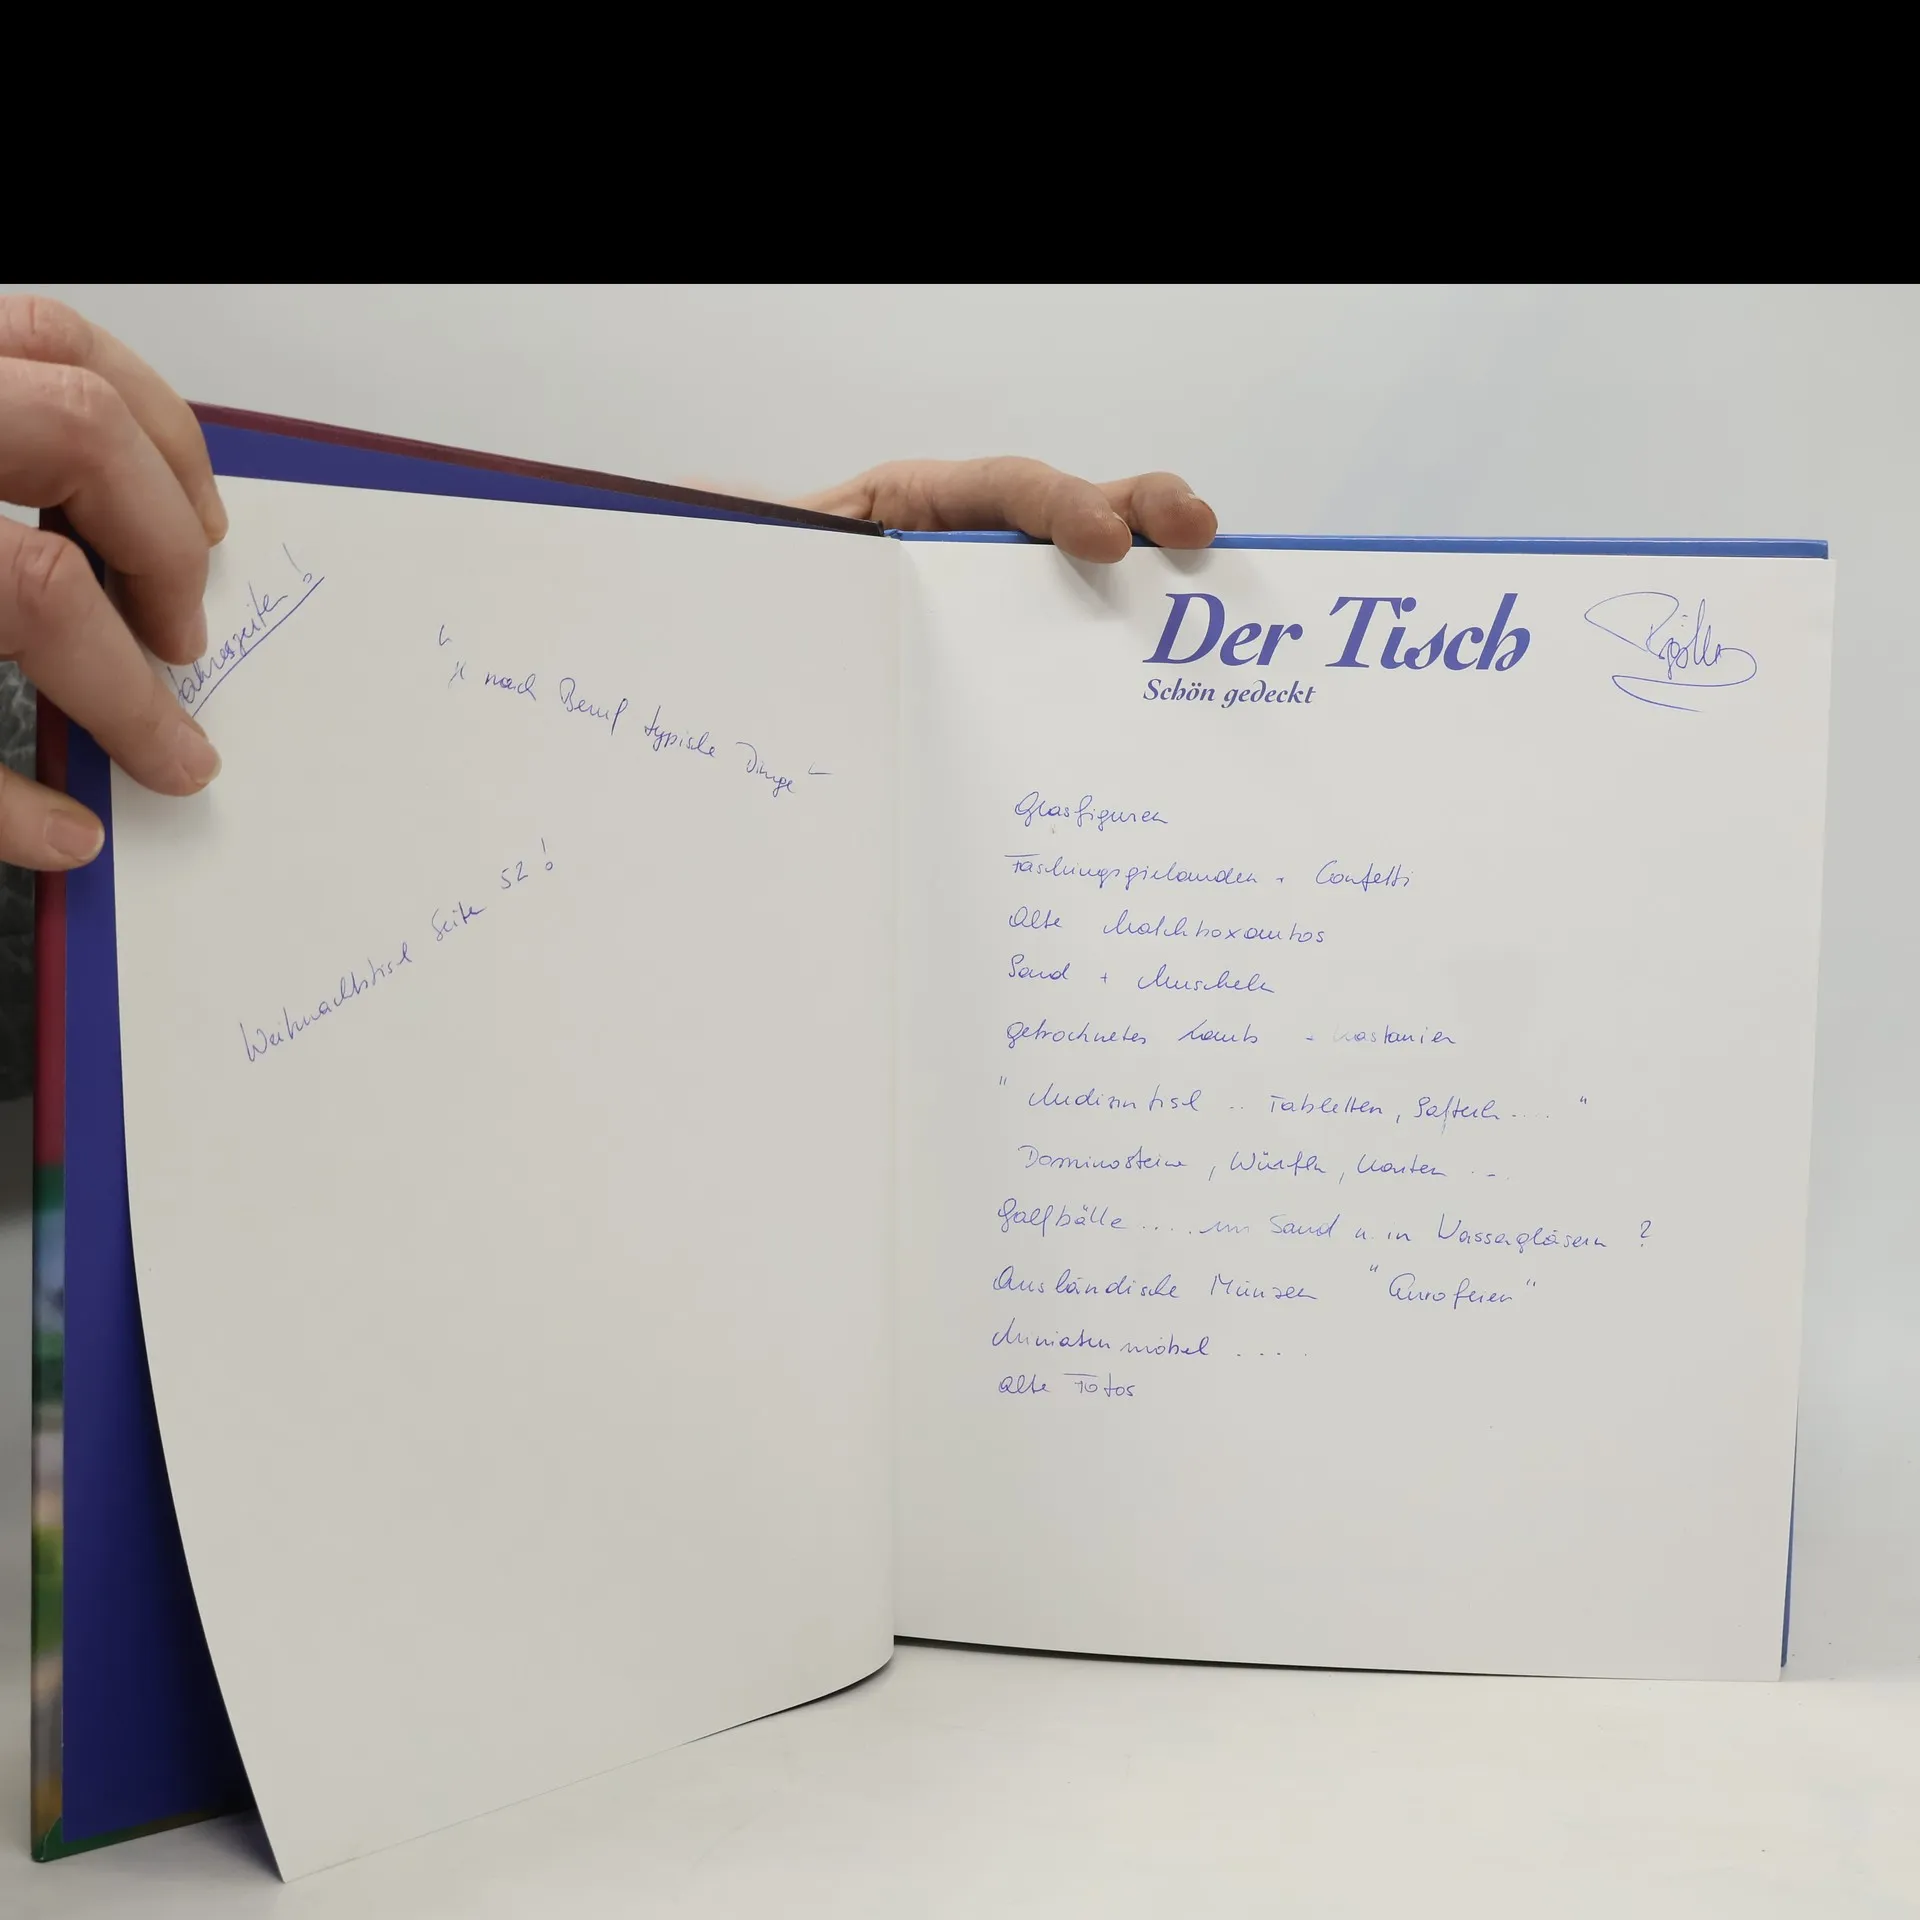 Jahreszeiten!
"je nach Beruf typische Dinge"
Weihnachtstisch Seite 52!
Der Tisch
Schön gedeckt
Glasfiguren
Faschingsgirlanden + Confetti
Alte Matchboxautos
Sand + Muscheln
getrocknetes Laub + Kastanien
" Medizintisch .. Tabletten, Safterl .... "
Dominosteine, Würfeln, Karten ...
Golfbälle .... im Sand u. in Wassergläsern ?
Ausländische Münzen "Eurofeier"
Miniaturmöbel ....
alte Fotos